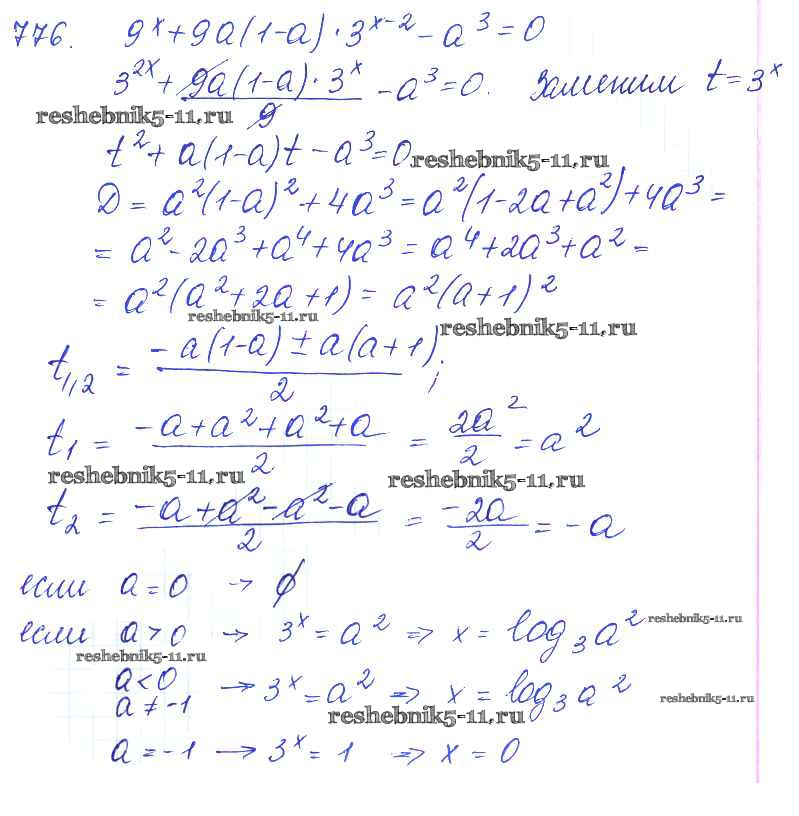 776. 9^x + 9a(1-a)·3^(x-2) - a^3 = 0
3^(2x) + 9a(1-a)·3^x / 9 - a^3 = 0. Заменим t = 3^x
reshebnik5-11.ru
t^2 + a(1-a)t - a^3 = 0 reshebnik5-11.ru
D = a^2(1-a)^2 + 4a^3 = a^2(1-2a+a^2) + 4a^3 =
= a^2 - 2a^3 + a^4 + 4a^3 = a^4 + 2a^3 + a^2 =
= a^2(a^2 + 2a + 1) = a^2(a+1)^2
reshebnik5-11.ru reshebnik5-11.ru
t_1,2 = (-a(1-a) ± a(a+1)) / 2 ;
t_1 = (-a + a^2 + a^2 + a) / 2 = 2a^2 / 2 = a^2
reshebnik5-11.ru reshebnik5-11.ru
t_2 = (-a + a^2 - a^2 - a) / 2 = -2a / 2 = -a
если a = 0 → ∅
если a > 0 → 3^x = a^2 ⇒ x = log_3 a^2 reshebnik5-11.ru
reshebnik5-11.ru
a < 0
a ≠ -1 → 3^x = a^2 ⇒ x = log_3 a^2 reshebnik5-11.ru
reshebnik5-11.ru
a = -1 → 3^x = 1 ⇒ x = 0